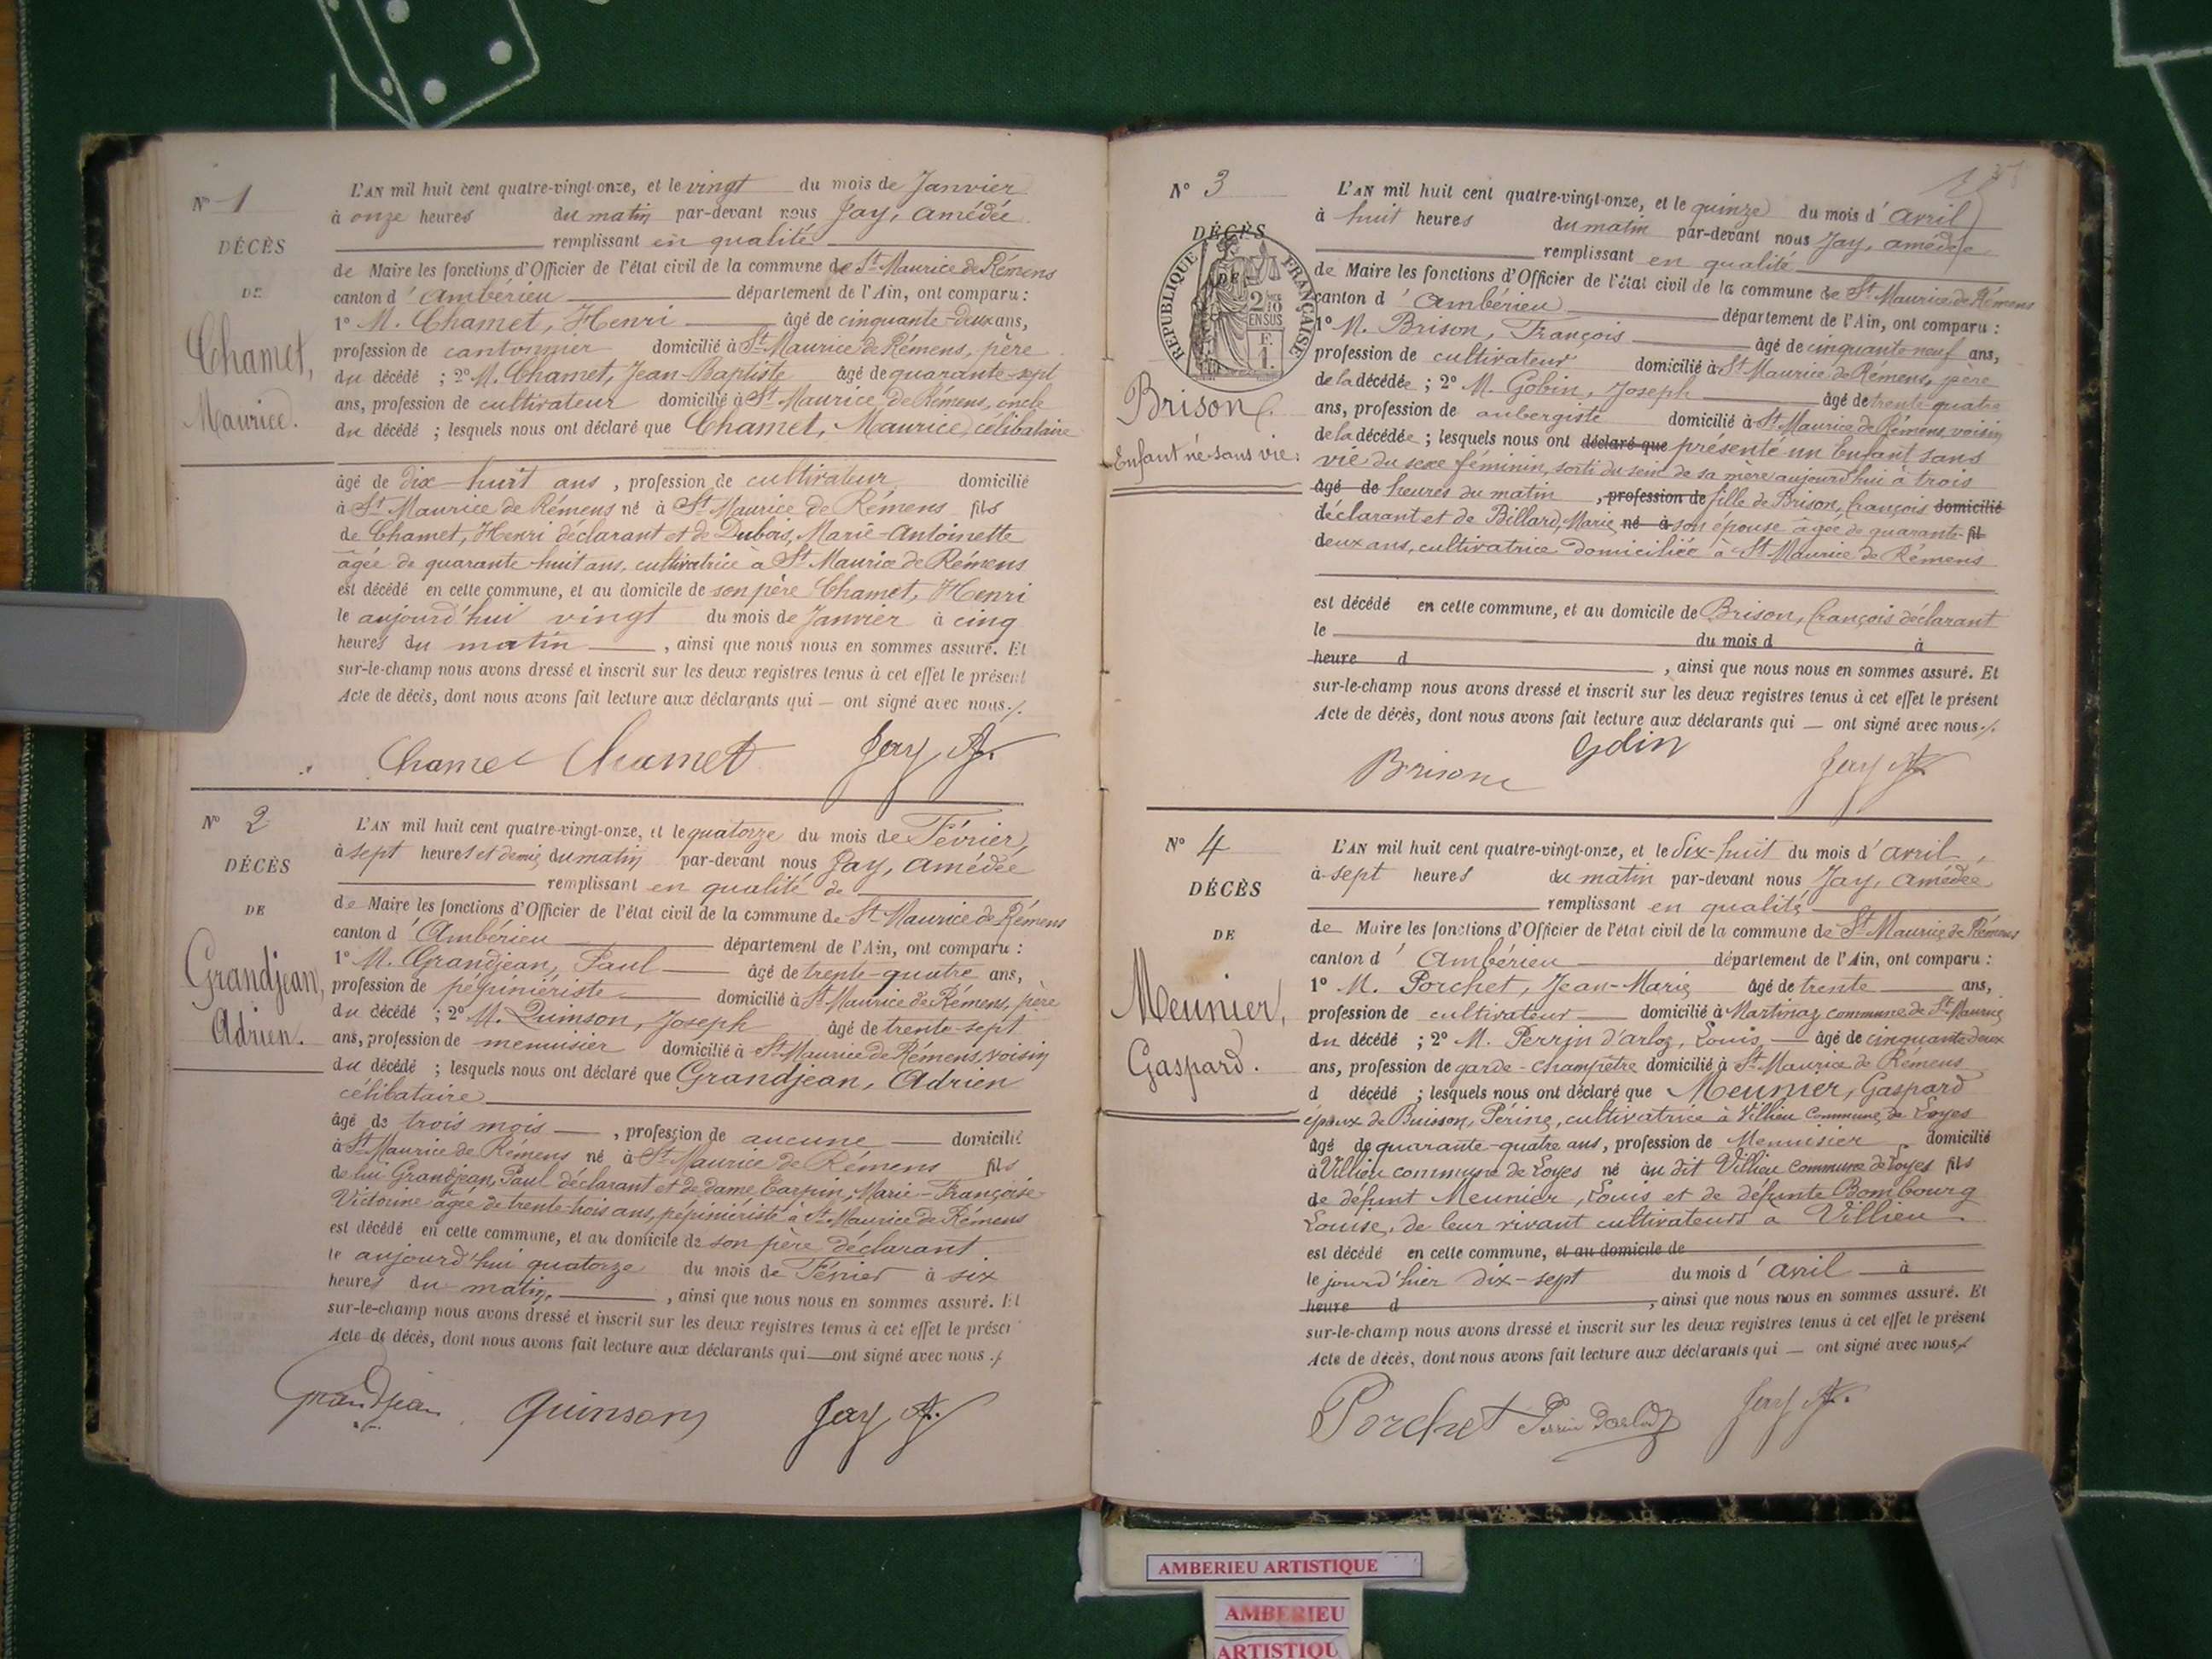 N° 1
DÉCÈS
DE
Chamet,
Maurice.
L'AN mil huit cent quatre-vingt-onze, et le vingt du mois de Janvier
à onze heures du matin par-devant nous Jay, Amédée
remplissant en qualité
de Maire les fonctions d'Officier de l'état civil de la commune de St Maurice de Rémens
canton d'Ambérieu département de l'Ain, ont comparu :
1° M. Chamet, Henri âgé de cinquante-deux ans,
profession de cantonnier domicilié à St Maurice de Rémens, père
du décédé ; 2° M. Chamet, Jean-Baptiste âgé de quarante-sept
ans, profession de cultivateur domicilié à St Maurice de Rémens, oncle
du décédé ; lesquels nous ont déclaré que Chamet, Maurice, célibataire
âgé de dix-huit ans, profession de cultivateur domicilié
à St Maurice de Rémens né à St Maurice de Rémens fils
de Chamet, Henri déclarant et de Dubois, Marie-Antoinette
âgée de quarante-huit ans, cultivatrice à St Maurice de Rémens
est décédé en cette commune, et au domicile de son père Chamet, Henri
le aujourd'hui vingt du mois de Janvier à cinq
heures du matin, ainsi que nous nous en sommes assuré. Et
sur-le-champ nous avons dressé et inscrit sur les deux registres tenus à cet effet le présent
Acte de décès, dont nous avons fait lecture aux déclarants qui — ont signé avec nous ./.
Chamet Chamet Jay, A.
N° 2
DÉCÈS
DE
Grandjean,
Adrien.
L'AN mil huit cent quatre-vingt-onze, et le quatorze du mois de Février,
à sept heures et demie du matin par-devant nous Jay, Amédée
remplissant en qualité de
de Maire les fonctions d'Officier de l'état civil de la commune de St Maurice de Rémens
canton d'Ambérieu département de l'Ain, ont comparu :
1° M. Grandjean, Paul âgé de trente-quatre ans,
profession de pépiniériste domicilié à St Maurice de Rémens, père
du décédé ; 2° M. Quinson, Joseph âgé de trente-sept
ans, profession de menuisier domicilié à St Maurice de Rémens, voisin
du décédé ; lesquels nous ont déclaré que Grandjean, Adrien
célibataire
âgé de trois mois, profession de aucune domicilié
à St Maurice de Rémens né à St Maurice de Rémens fils
de lui Grandjean, Paul déclarant et de dame Marie-Françoise
Victorine âgée de trente-trois ans, pépiniériste à St Maurice de Rémens
est décédé en cette commune, et au domicile de son père déclarant
le aujourd'hui quatorze du mois de Février à six
heures du matin, ainsi que nous nous en sommes assuré. Et
sur-le-champ nous avons dressé et inscrit sur les deux registres tenus à cet effet le présent
Acte de décès, dont nous avons fait lecture aux déclarants qui — ont signé avec nous ./.
Grandjean Quinson Jay, A.
N° 3
DÉCÈS
DE
RÉPUBLIQUE FRANÇAISE
2/10
EN SUS
F.
1.
Brison
Enfant né sans vie.
L'AN mil huit cent quatre-vingt-onze, et le quinze du mois d'avril
à huit heures du matin par-devant nous Jay, amédée
remplissant en qualité
de Maire les fonctions d'Officier de l'état civil de la commune de St Maurice de Rémens
canton d'Ambérieu département de l'Ain, ont comparu :
1° M. Brison, François âgé de cinquante-neuf ans,
profession de cultivateur domicilié à St Maurice de Rémens, père
de la décédée ; 2° M. Gobin, Joseph âgé de trente-quatre
ans, profession de aubergiste domicilié à St Maurice de Rémens, voisin
de la décédée ; lesquels nous ont déclaré que présenté un Enfant sans
vie du sexe féminin, sorti du sein de sa mère aujourd'hui à trois
âgé de heures du matin, profession de fille de Brison, françois domicilié
déclarant et de Billard, Marie né à son épouse âgée de quarante- fil
deux ans, cultivatrice domiciliée à St Maurice de Rémens
est décédé en cette commune, et au domicile de Brison, françois déclarant
le du mois d à
heure d, ainsi que nous nous en sommes assuré. Et
sur-le-champ nous avons dressé et inscrit sur les deux registres tenus à cet effet le présent
Acte de décès, dont nous avons fait lecture aux déclarants qui — ont signé avec nous ./.
Brison Jay A.
N° 4
DÉCÈS
DE
Meunier,
Gaspard.
L'AN mil huit cent quatre-vingt-onze, et le dix-huit du mois d'avril,
à sept heures du matin par-devant nous Jay, Amédée
remplissant en qualité
de Maire les fonctions d'Officier de l'état civil de la commune de St Maurice de Rémens
canton d'Ambérieu département de l'Ain, ont comparu :
1° M. Porchet, Jean-Marie âgé de trente ans,
profession de cultivateur domicilié à Martinaz commune de St Maurice
du décédé ; 2° M. Perrin d'arloz, Louis âgé de cinquante deux
ans, profession de garde-champêtre domicilié à St Maurice de Rémens
d décédé ; lesquels nous ont déclaré que Meunier, Gaspard
époux de Buisson, Périne, cultivatrice à Villieu Commune de Loyes
âgé de quarante-quatre ans, profession de Menuisier domicilié
à Villieu commune de Loyes né au dit Villieu Commune de Loyes fils
de défunt Meunier, Louis et de défunte Bombourg
Louise, de leur vivant cultivateurs à Villieu
est décédé en cette commune, et au domicile de
le jourd'hier dix-sept du mois d'avril à
heure d, ainsi que nous nous en sommes assuré. Et
sur-le-champ nous avons dressé et inscrit sur les deux registres tenus à cet effet le présent
Acte de décès, dont nous avons fait lecture aux déclarants qui — ont signé avec nous ./.
Porchet Perrin Darloz Jay A.
AMBERIEU ARTISTIQUE
AMBERIEU
ARTISTIQU